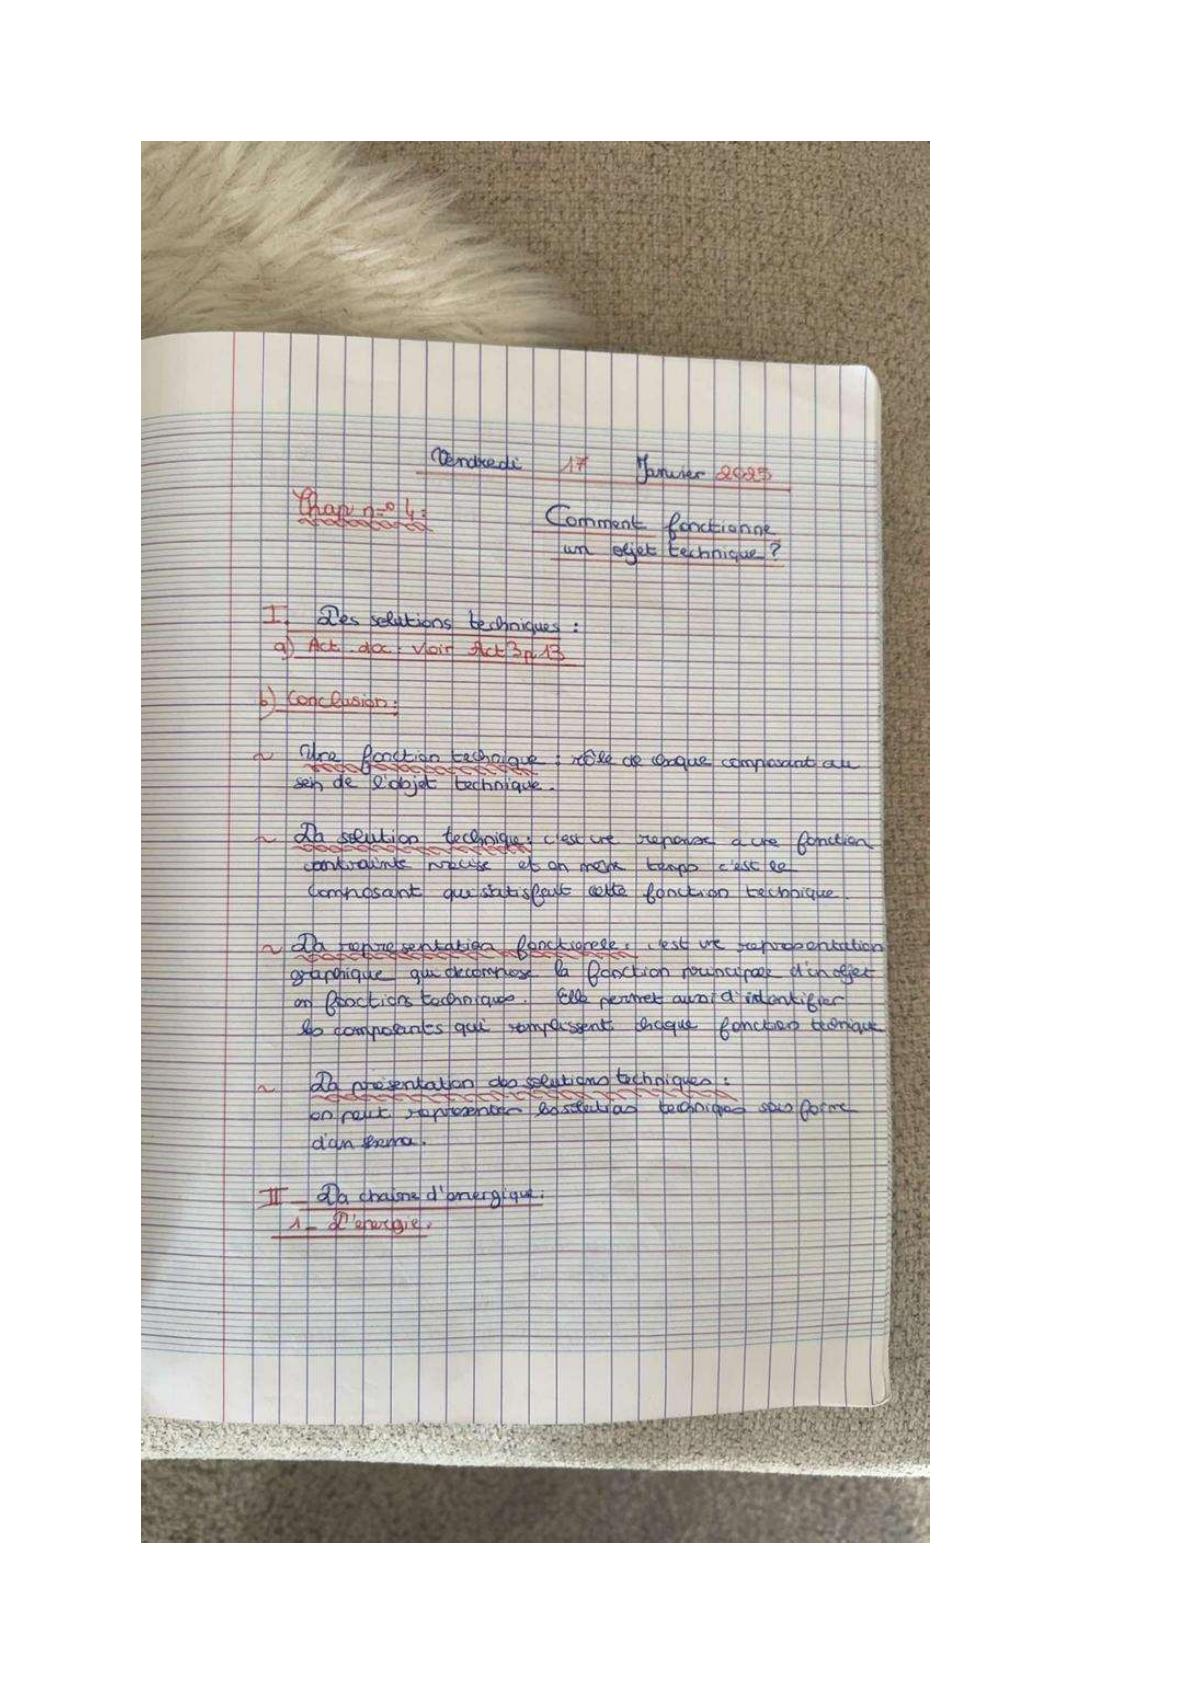 Vendredi 17 Janvier 2025
Chap n=° 4:
Comment fonctionne
un objet technique ?
I. Des solutions techniques :
a) Act. doc : voir Act 3 p 13
b) Conclusion :
~ Une fonction technique : rôle de chaque composant au
sein de l'objet technique.
~ La solution technique : c'est une reponse a une fonction
contrainte précise et en meme temps c'est le
composant qui satisfait cette fonction technique.
~ La representation fonctionelle : c'est une representation
graphique qui decompose la fonction principale d'un objet
en fonctions techniques. Elle permet aussi d'identifier
les composants qui remplissent chaque fonction technique
~ La présentation des solutions techniques :
on peut representer les solutions techniques sous forme
d'un
II - La chaine d'energique.
1 - L'energie.